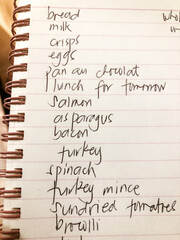 bread
milk
crisps
eggs
pan au chocolat
lunch for tomorrow
salmon
asparagus
bacon
turkey
spinach
turkey mince
sundried tomatoes